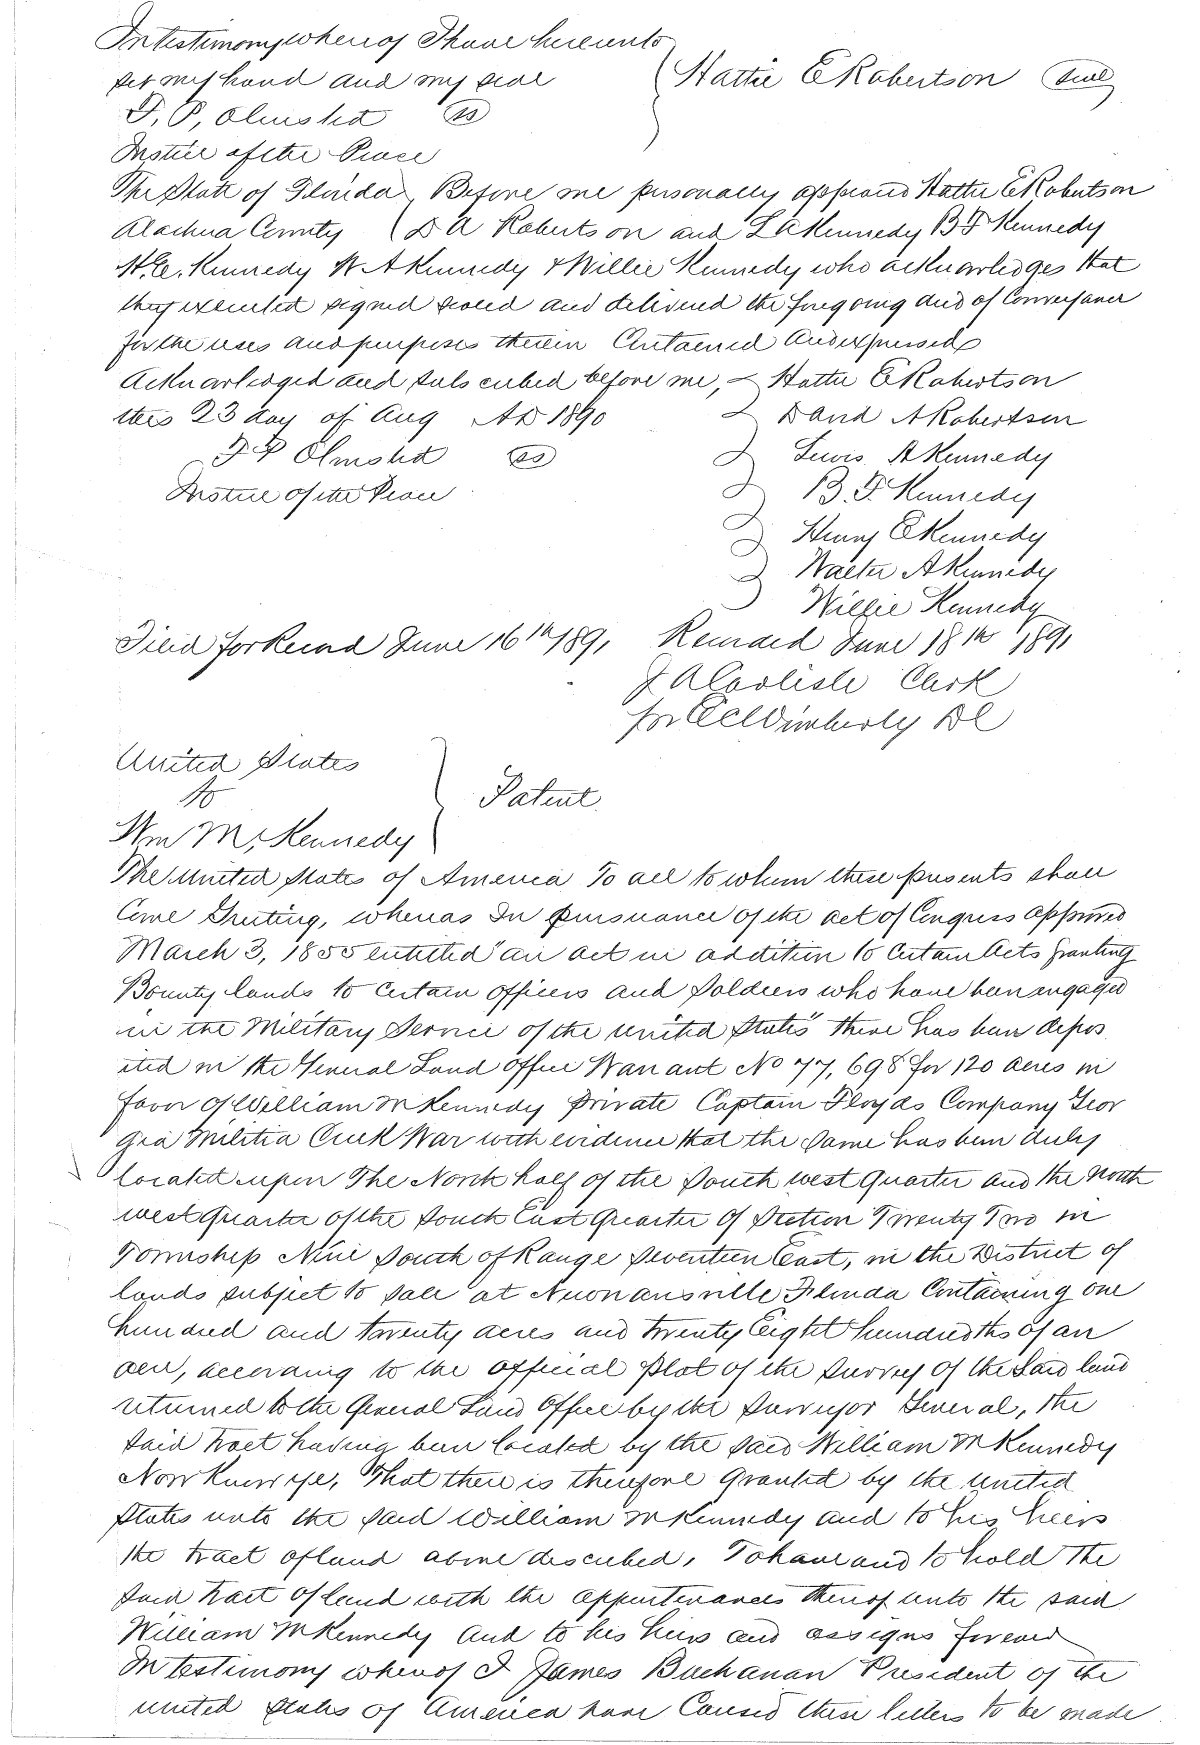 In testimony whereof I have hereunto
set my hand and my seal } Hattie E Robertson (Seal)
F. P. Olmsted (SS)
Justice of the Peace
The State of Florida } Before me personally appeared Hattie E Robertson
Alachua County ( D A Robertson and L A Kennedy B F Kennedy
H. E. Kennedy W. A Kennedy & Willie Kennedy who acknowledges that
they executed signed sealed and delivered the foregoing deed of Conveyance
for the uses and purposes therein Contained and expressed
Acknowledged and subscribed before me, Hattie E Robertson
this 23 day of Aug AD 1890 David A Robertson
F P Olmsted (SS) Lewis A Kennedy
Justice of the Peace B. F. Kennedy
Henry E Kennedy
Walter A Kennedy
Willie Kennedy
Filed for Record June 16th 1891 Recorded June 18th 1891
J A Carlisle Clerk
for E C Wimberly DC
United States
to } Patent
Wm M. Kennedy
The United States of America To all to whom these presents shall
Come Greeting, whereas In pursuance of the act of Congress approved
March 3, 1855 entitled "an act in addition to Certain Acts granting
Bounty lands to certain officers and Soldiers who have been engaged
in the Military Service of the United States" there has been depos
ited in the General Land Office Warrant No 77,698 for 120 acres in
favor of William M Kennedy Private Captain Floyds Company Geor
gia Militia Creek War with evidence that the same has been duly
located upon The North half of the South west Quarter and the North
west Quarter of the South East Quarter of Section Twenty Two in
Township Nine South of Range Seventeen East, in the District of
lands subject to sale at Newnansville Florida Containing one
hundred and twenty acres and twenty Eight hundredths of an
acre, according to the official Plot of the Survey of the Said land
returned to the General Land Office by the Surveyor General, the
said tract having been located by the said William M Kennedy
Now Know ye, That there is therefore Granted by the United
States unto the said William M Kennedy and to his heirs
the tract of land above described, To have and to hold the
said tract of land with the appurtenances thereof unto the said
William M Kennedy and to his heirs and assigns forever
In testimony whereof I James Buchanan President of the
United States of America have Caused these letters to be made